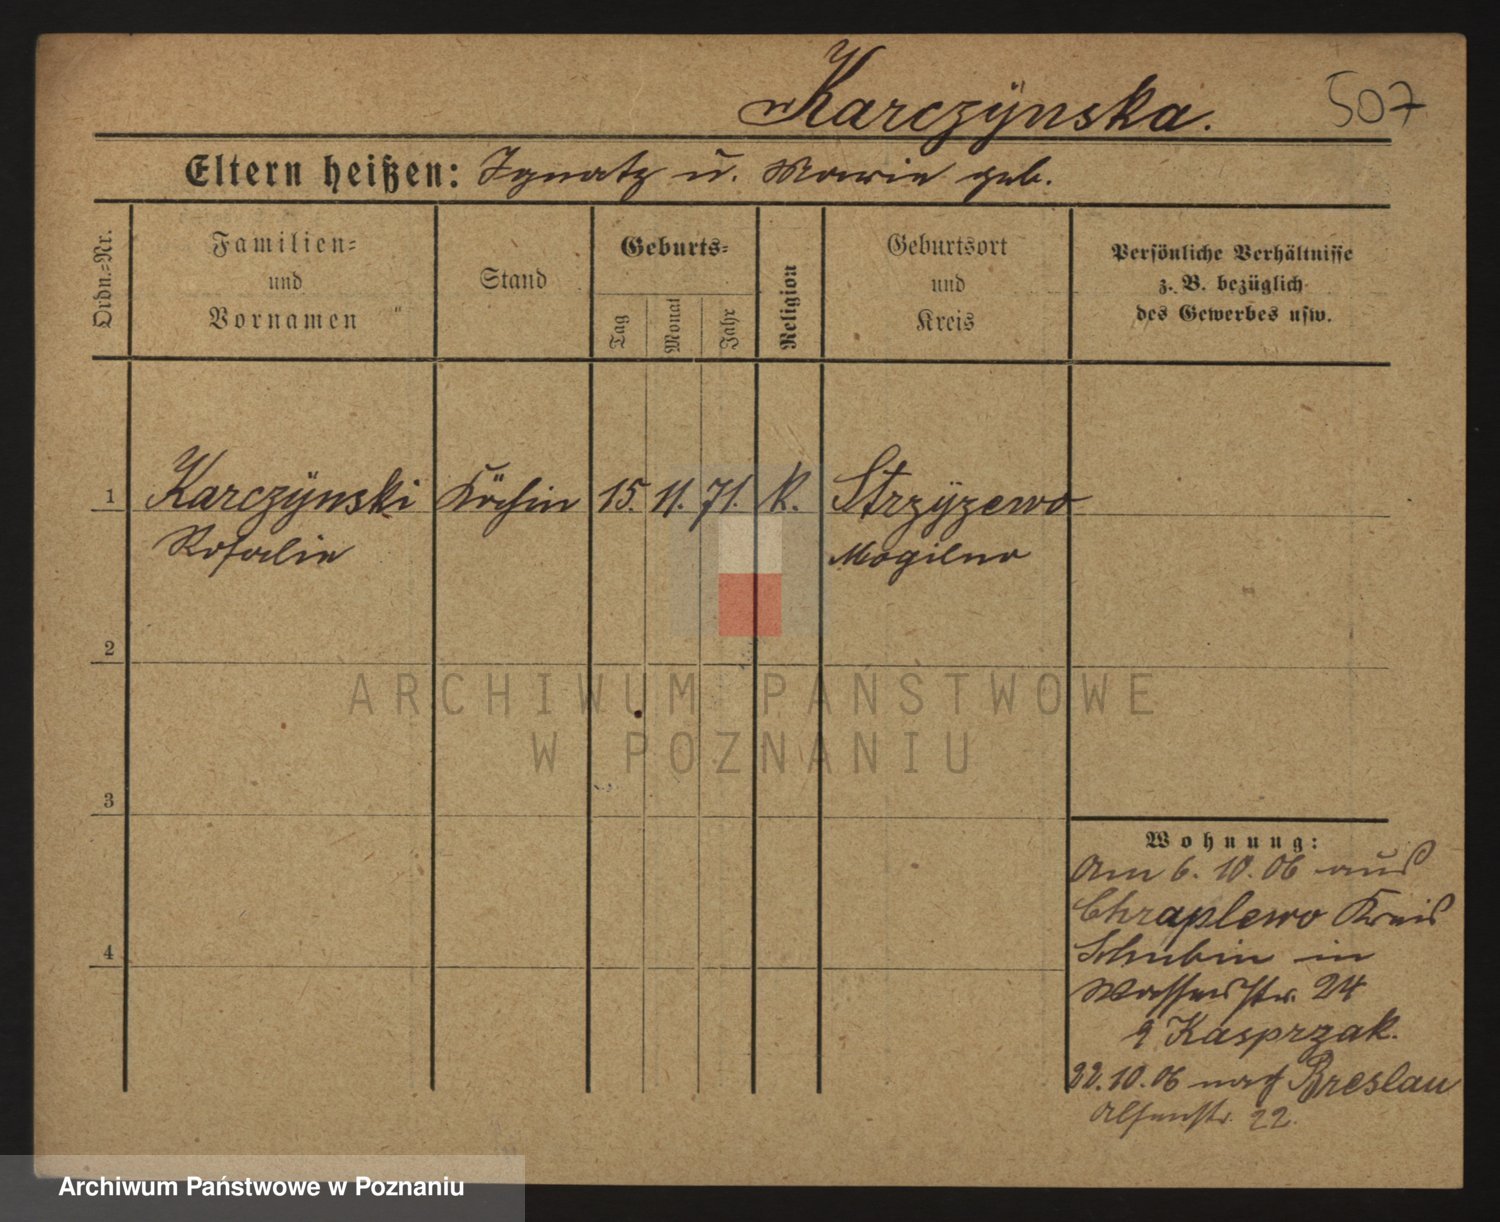 Karczÿnska.
507
Eltern heißen: Ignatz u. Marie geb.
Ordn.=Nr.
Familien=
und
Vornamen
Stand
Geburts=
Tag
Monat
Jahr
Religion
Geburtsort
und
Kreis
Persönliche Verhältnisse
z. B. bezüglich
des Gewerbes usw.
1 Karczÿnski Köchin 15. 11. 71. k. Strzÿzewo
Rosalie Mogilno
2
3
4
Wohnung:
Am 6. 10. 06 aus
Chraplewo Kreis
Schubin in
Wasserstr. 24
Kasprzak.
22. 10. 06 nach Breslau
Alsenstr. 22.
ARCHIWUM PAŃSTWOWE
W POZNANIU
Archiwum Państwowe w Poznaniu